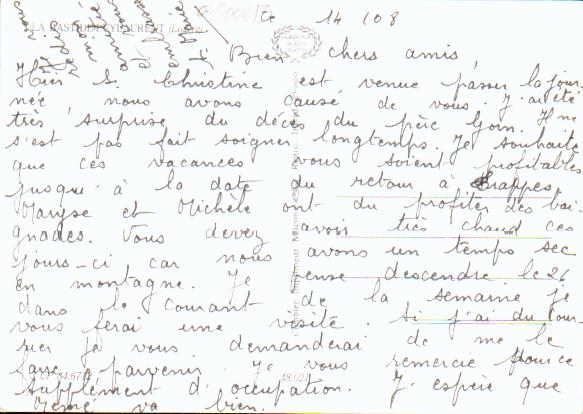 LA BASTIDE PUYLAURENT (Lozère)
Ce 14 / 08
Bien chers amis,
Hier S. Christine est venue passer la jour-
née, nous avons causé de vous. J'ai été
très surprise du décès du père Goin. Il ne
s'est pas fait soigner longtemps. Je souhaite
que ces vacances vous soient profitables
jusqu'à la date du retour à Trappes.
Maryse et Michèle ont du profiter des bai-
gnades. Vous devez avoir très chaud ces
jours-ci car nous avons un temps sec
en montagne. Je pense descendre le 26
dans le courant de la semaine je
vous ferai une visite. Si j'ai du cour-
rier je vous demanderai de me le
faire parvenir. Je vous remercie pour ce
supplément d'occupation. J'espère que
va bien.